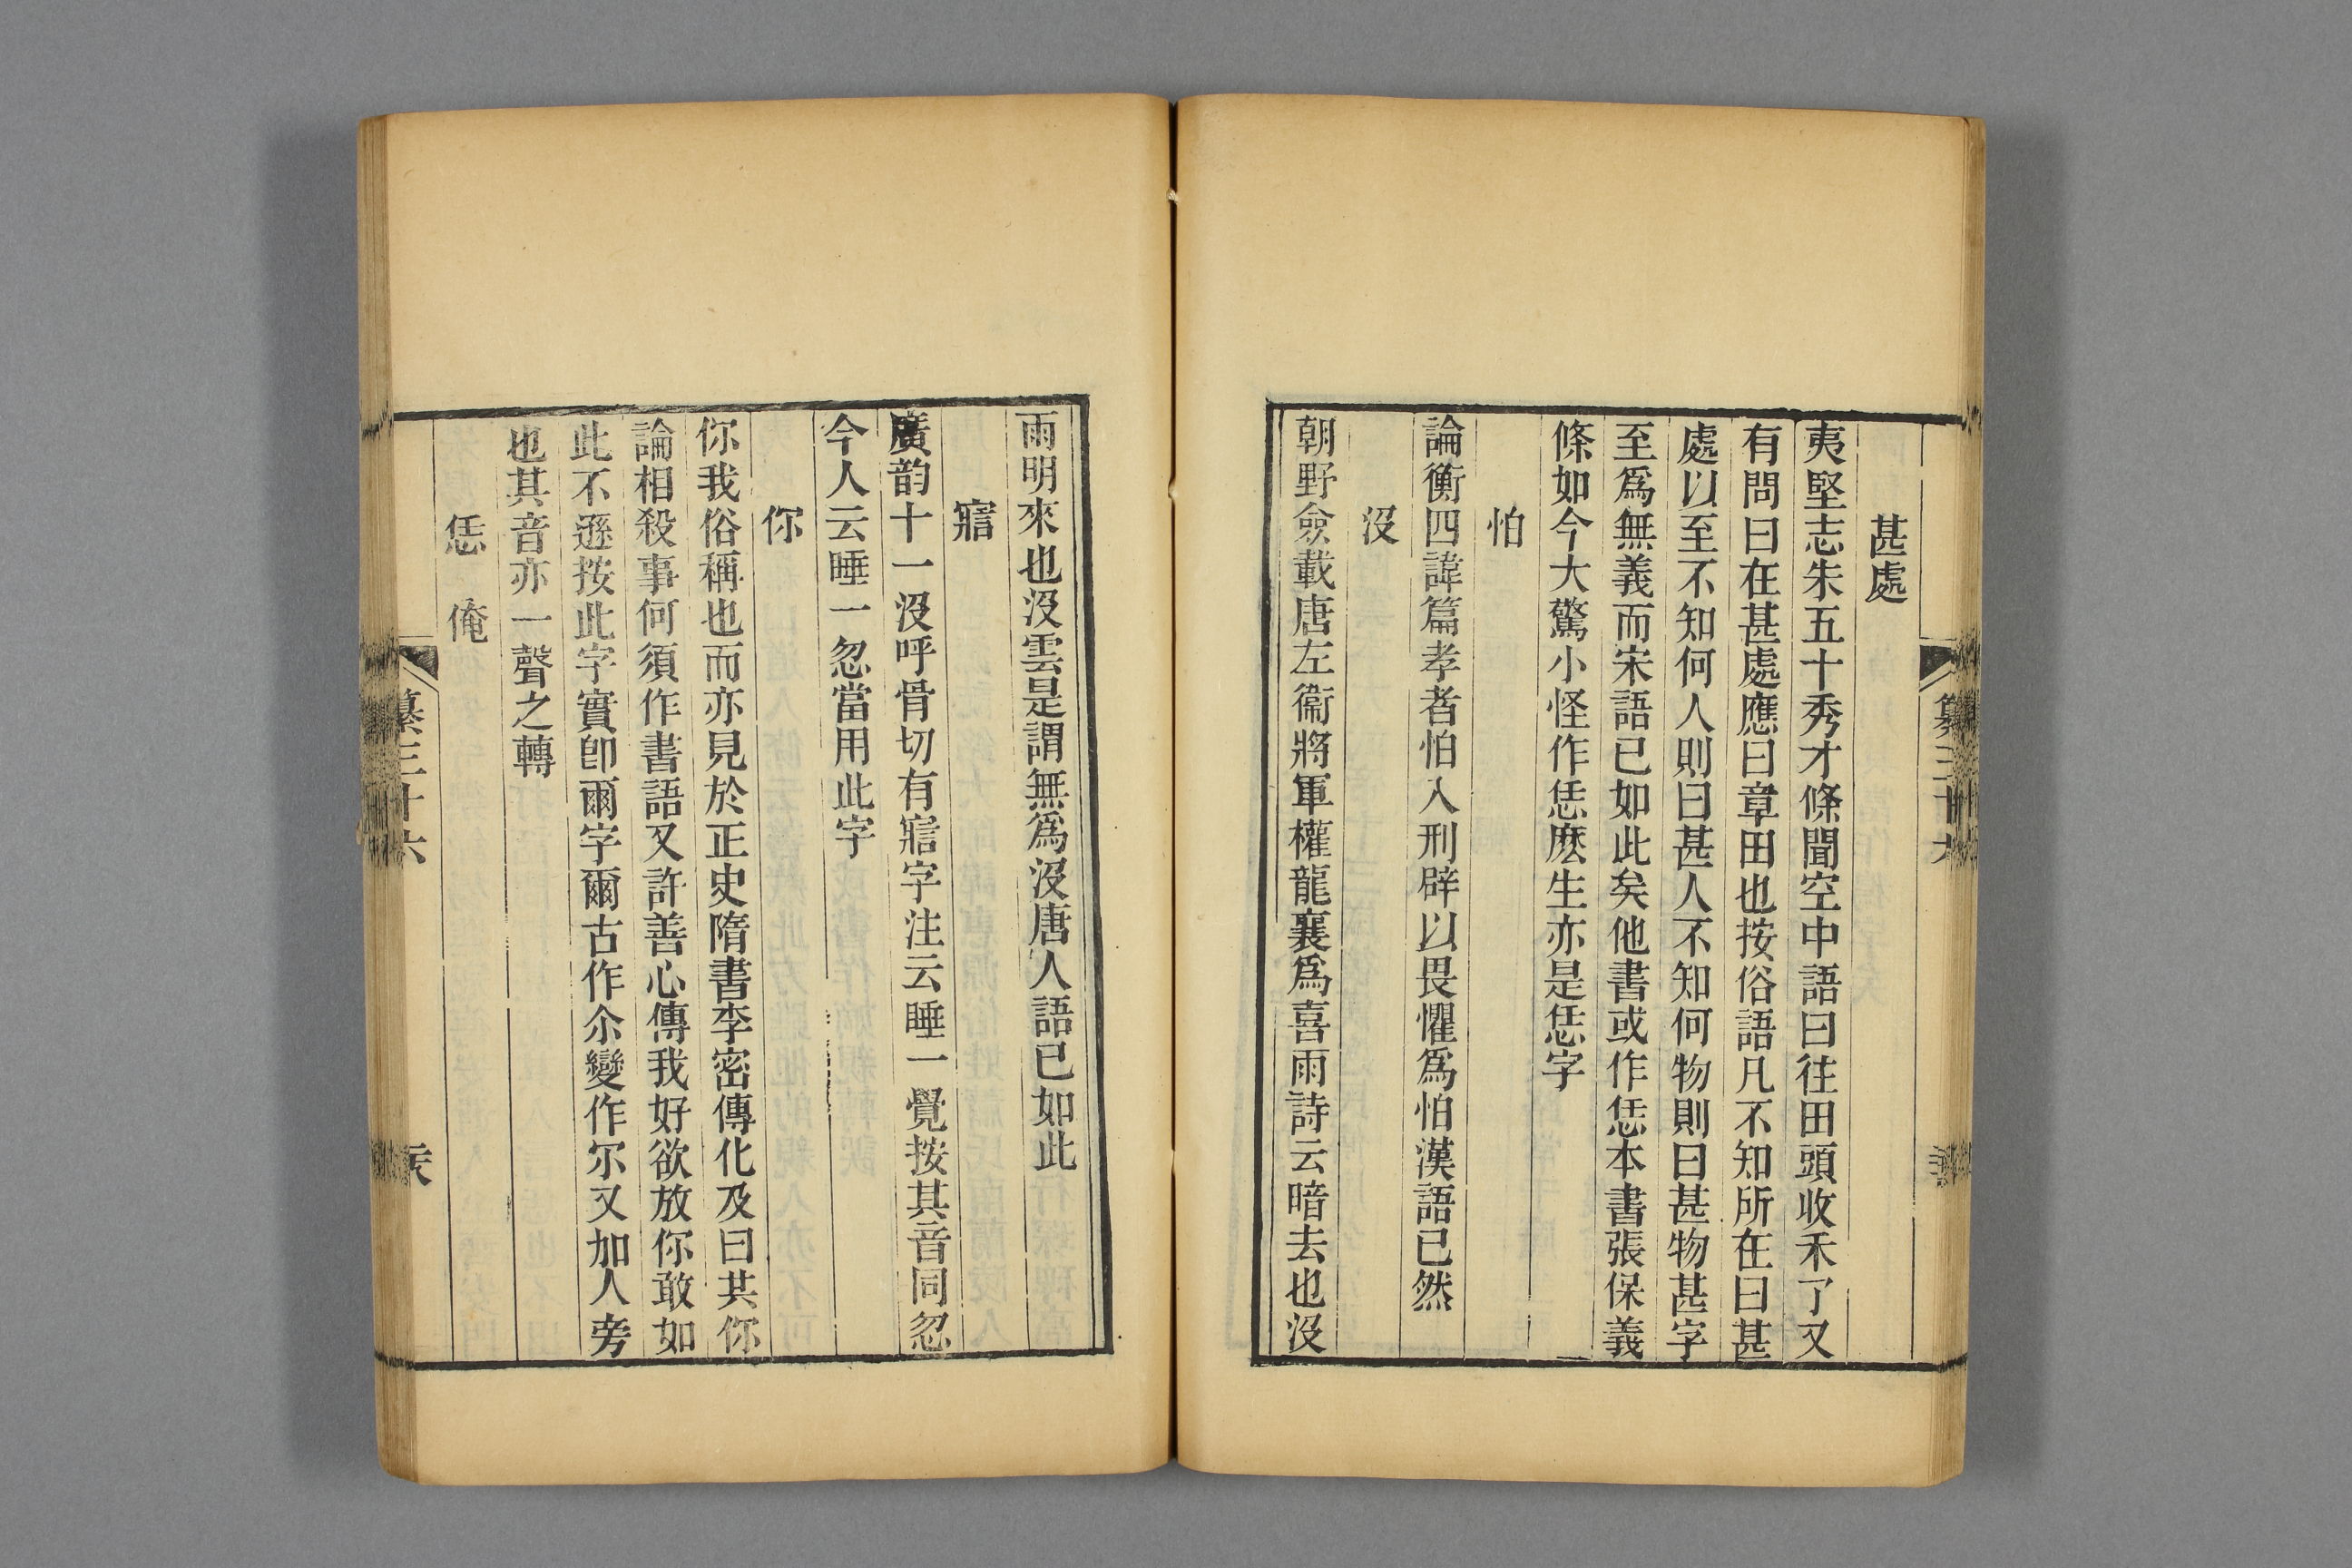 甚處
夷堅志朱五十秀才條聞空中語曰往田頭收禾了又
有問曰在甚處應曰章田也按俗語凡不知所在曰甚
處以至不知何人則曰甚人不知何物則曰甚物甚字
至爲無義而宋語已如此矣他書或作恁本書張保義
條如今大驚小怪作恁麽生亦是恁字
怕
論衡四諱篇孝者怕入刑辟以畏懼爲怕漢語已然
沒
朝野僉載唐左衞將軍權龍襄爲喜雨詩云暗去也沒
雨明來也沒雲是謂無爲沒唐人語已如此
𡨥
廣韵十一沒呼骨切有𡨥字注云睡一覺按其音同忽
今人云睡一忽當用此字
你
你我俗稱也而亦見於正史隋書李密傳化及曰共你
論相殺事何須作書語又許善心傳我好欲放你敢如
此不遜按此字實卽爾字爾古作尒變作尔又加人旁
也其音亦一聲之轉
恁 俺
纂三十六